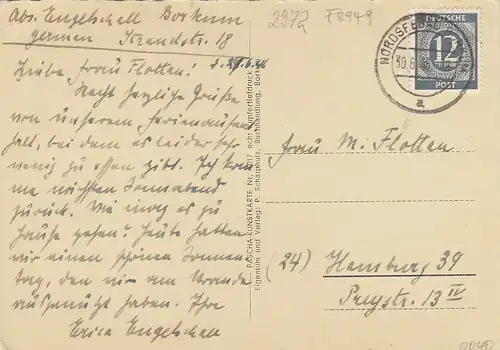 Abs. Engelschall Borkum
Strandstr. 18
2972
F8949
d. 29.6.46
Liebe Frau Flotten!
Recht herzliche Grüße
von unserem Ferienaufent
halt, bei dem es leider sehr
wenig zu essen gibt. Ich kom
me nächsten Sonnabend
zurück. Wie mag es zu
Hause gehen? Heute hatten
wir einen schönen Sonnen
tag, den wir am Strande
ausgenutzt haben. Ihre
Erica Engelschall
PASCHA-KUNSTKARTE Nr. echt Kupfertiefdruck
Eigentum und Verlag: P. Scharphuis, Buchhandlung, Borkum
NORDSEEBAD
30.6.
a
DEUTSCHE
12
POST
Frau M. Flotten
(24) Hamburg 39
Preystr. 13 IV